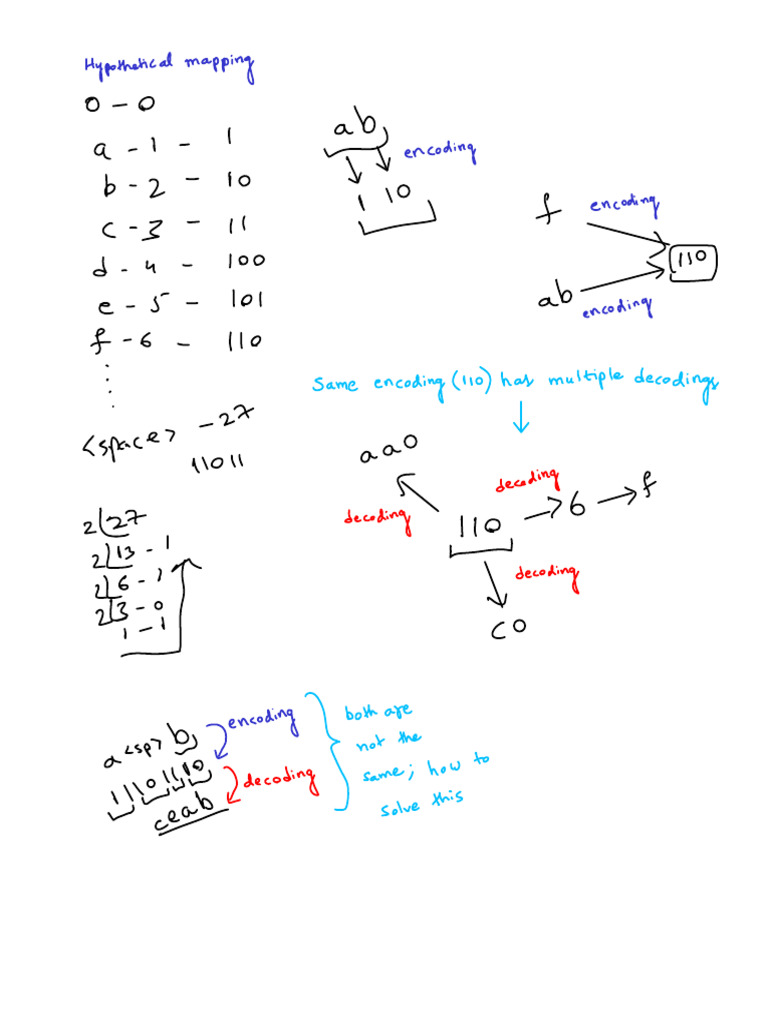 Hypothetical mapping
0 - 0
a - 1 - 1
b - 2 - 10
c - 3 - 11
d - 4 - 100
e - 5 - 101
f - 6 - 110
<space> - 27
11011
2 27
2 13 - 1
2 6 - 1
2 3 - 0
1 - 1
ab
encoding
1 10
f encoding
110
ab encoding
Same encoding (110) has multiple decodings
aa0
decoding
decoding
110 → 6 → f
decoding
c0
a <sp> b encoding
11101110 decoding
ceab
both are
not the
same; how to
solve this